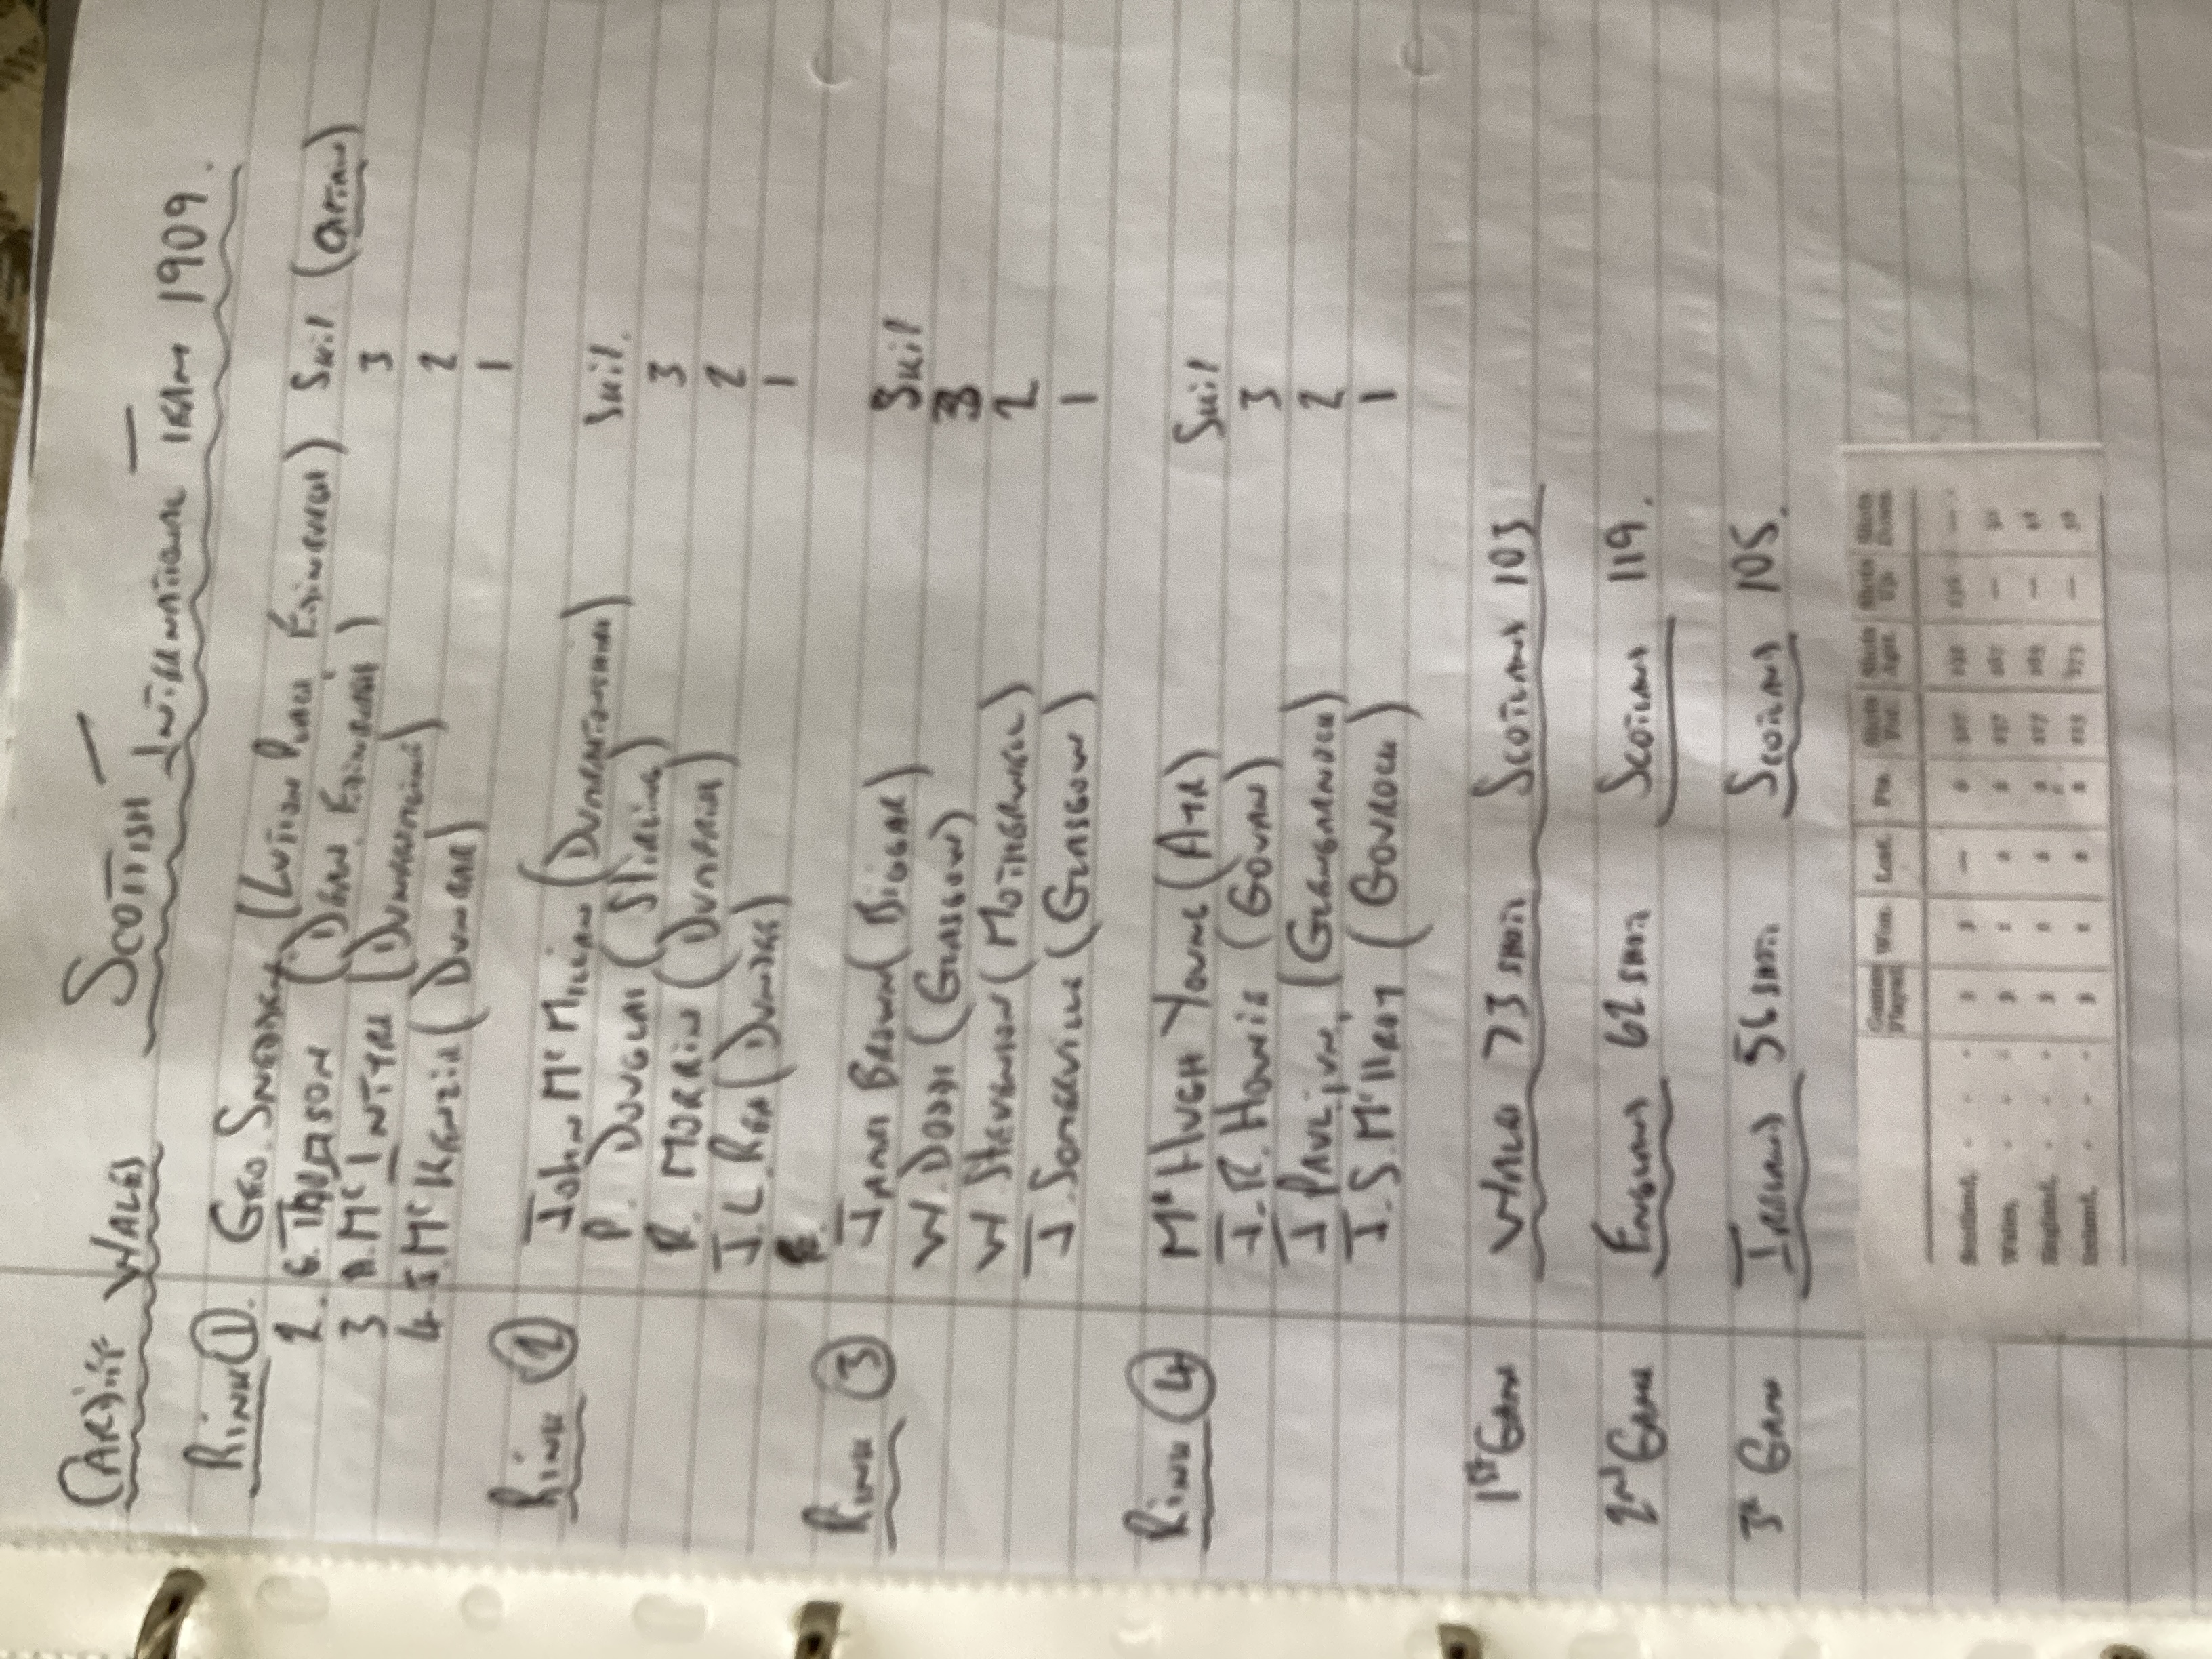 CARDIFF WALES SCOTTISH INTERNATIONAL TEAM 1909.
RINK 1. GEO. (LUTTON PLACE EDINBURGH) SKIP (CAPTAIN)
2. G. (DEAN EDINBURGH) 3
3 MCINTYRE (DUNFERMLINE) 2
4. J. MCKENZIE (DUNBAR) 1
RINK 2 JOHN MCMILLAN (DUNBARTONSHIRE) SKIP.
P. DOUGLAS (STIRLING) 3
R. MORRIN (DUMFRIES) 2
J. L. REA (DUNDEE) 1
RINK 3 JAMES BROWN (BIGGAR) SKIP
W. DODDS (GLASGOW) 3
W STEVENSON (MOTHERWELL) 2
J. SOMERVILLE (GLASGOW) 1
RINK 4 MC HUGH YOUNG (AYR) SKIP
J. R. HOWIE (GOVAN) 3
J PAULIN, (GLENGARNOCK) 2
J. S. MCILROY (GOUROCK) 1
1ST GAME WALES 73 SHOTS SCOTLAND 103
2ND GAME ENGLAND 62 SHOTS SCOTLAND 119.
3RD GAME IRELAND 56 SHOTS SCOTLAND 105.
Games Played Won Lost Pts. Shots For Shots Agst. Shots Up Shots Down
Scotland 3 3 —
Wales 3 —
England 3 —
Ireland 3 —